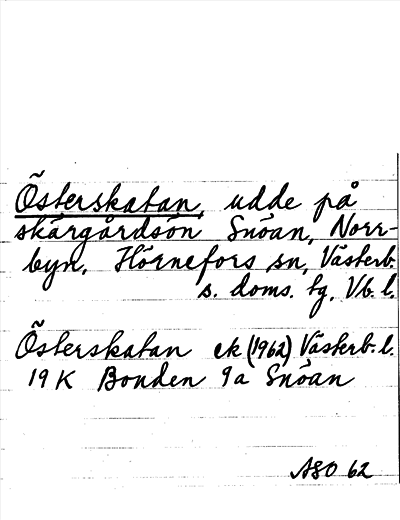 Österskatan, udde på
skärgårdsön Snöan, Norr-
byn, Hörnefors sn, Västerb.
s. doms. tg, Vb. l.
Österskatan ek (1962) Västerb. l.
19 K Bonden 9a Snöan
ASO 62